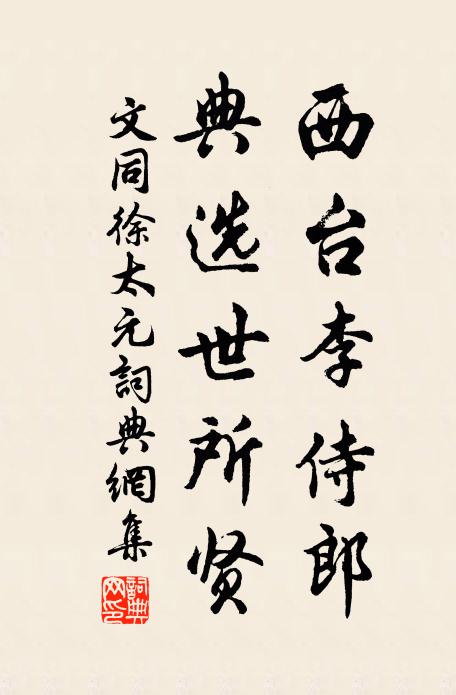 西台李侍郎
典选世所贤
文同徐太元詞典網集
詞典网印